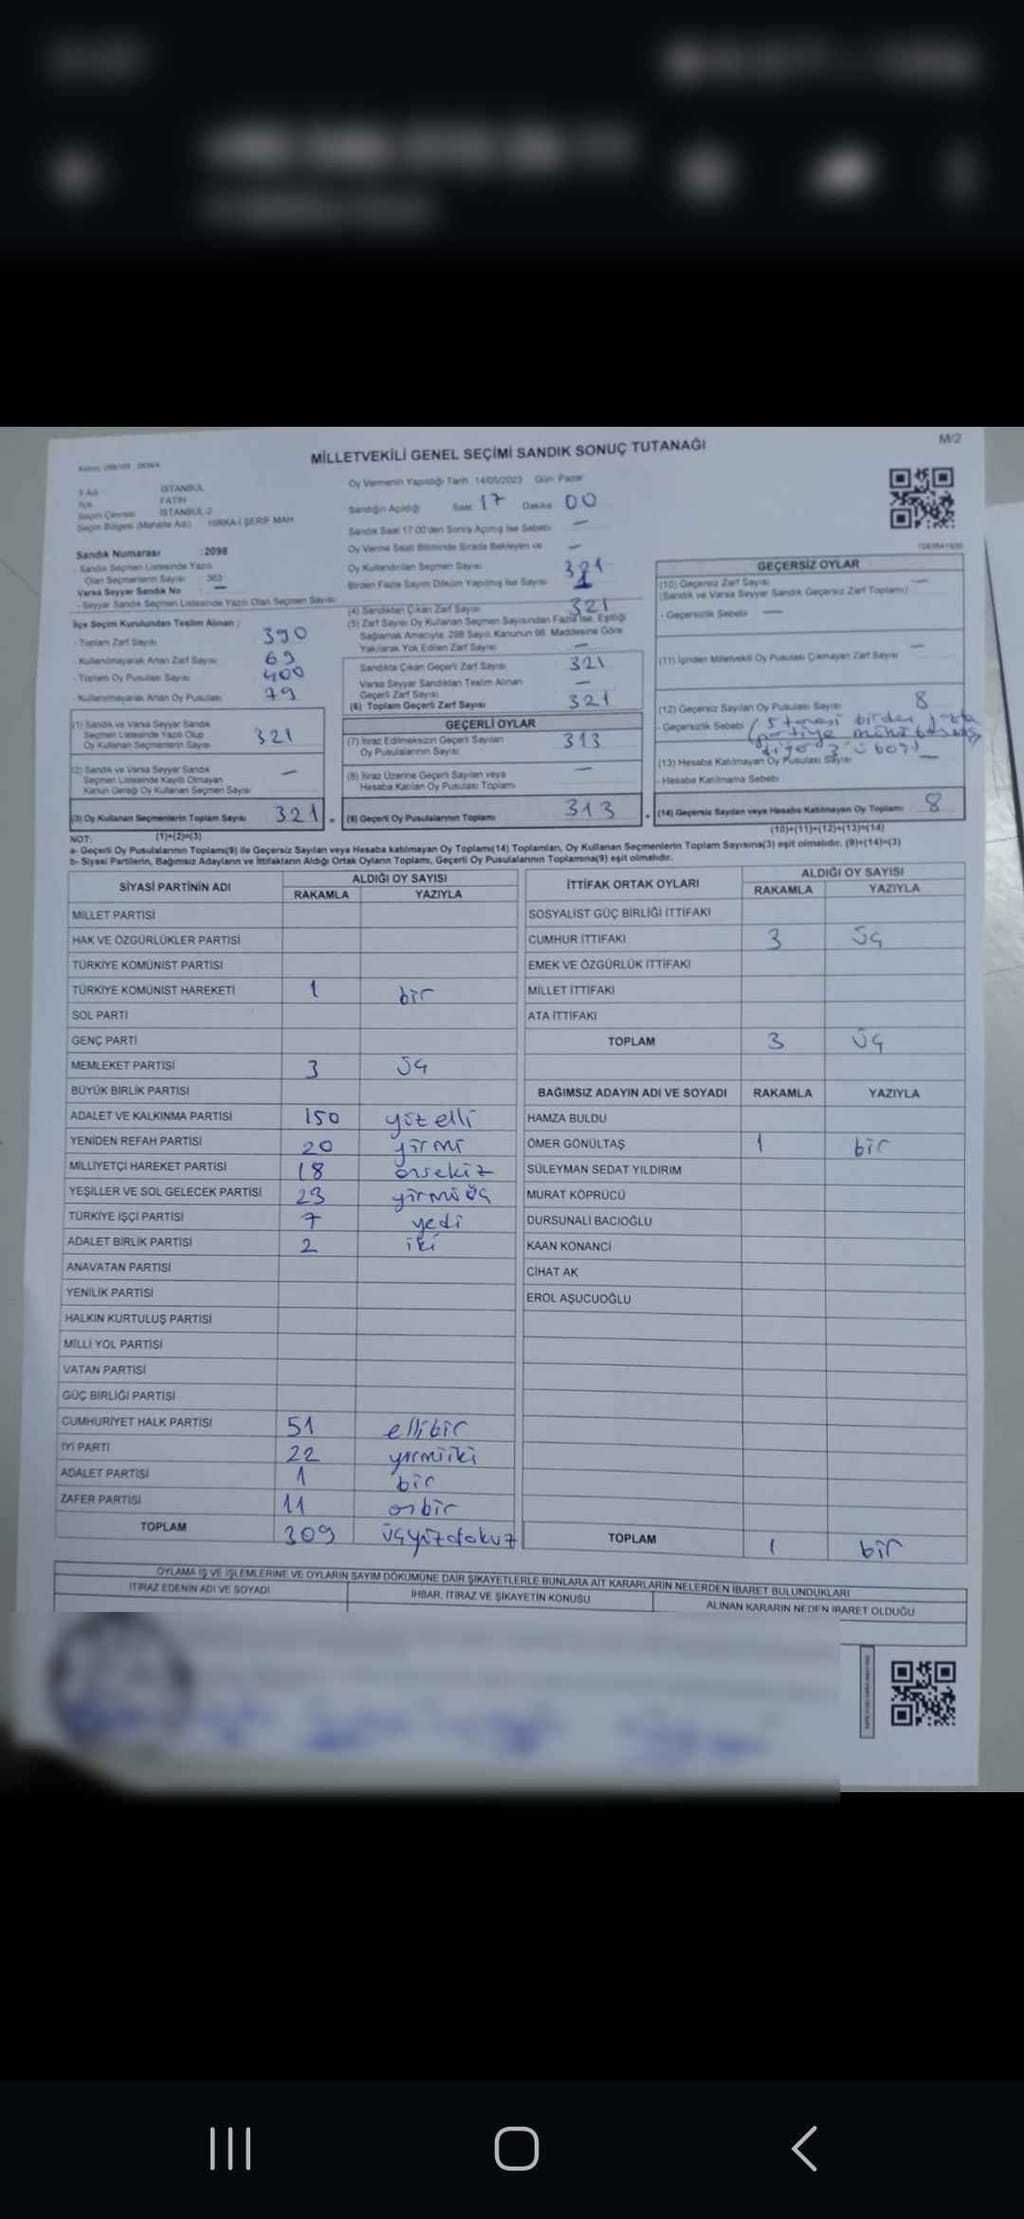 M/2
MİLLETVEKİLİ GENEL SEÇİMİ SANDIK SONUÇ TUTANAĞI
İSTANBUL
FATİH
İSTANBUL-2
Seçim Bölgesi (Mahalle Adı) : HIRKA-İ ŞERİF MAH
Sandık Numarası :2098
Sandık Seçmen Listesinde Yazılı
Olan Seçmenlerin Sayısı : 363
Varsa Seyyar Sandık No
- Seyyar Sandık Seçmen Listesinde Yazılı Olan Seçmen Sayısı
İlçe Seçim Kurulundan Teslim Alınan ;
- Toplam Zarf Sayısı 390
- Kullanılmayarak Artan Zarf Sayısı 69
- Toplam Oy Pusulası Sayısı 400
- Kullanılmayarak Artan Oy Pusulası 79
(1) Sandık ve Varsa Seyyar Sandık
Seçmen Listesinde Yazılı Olup
Oy Kullanan Seçmenlerin Sayısı 321
(2) Sandık ve Varsa Seyyar Sandık
Seçmen Listesinde Kayıtlı Olmayan
Kanun Gereği Oy Kullanan Seçmen Sayısı —
(3) Oy Kullanan Seçmenlerin Toplam Sayısı 321 =
(1)+(2)=(3)
Oy Vermenin Yapıldığı Tarih 14/05/2023 Gün: Pazar
Sandığın Açıldığı Saat 17 Dakika 00
Sandık Saat 17:00'den Sonra Açılmış İse Sebebi —
Oy Verme Saati Bitiminde Sırada Bekleyen ve
Oy Kullandırılan Seçmen Sayısı —
Birden Fazla Sayım Döküm Yapılmış İse Sayısı
(4) Sandıktan Çıkan Zarf Sayısı 321
(5) Zarf Sayısı Oy Kullanan Seçmen Sayısından Fazla İse, Eşitliği
Sağlamak Amacıyla, 298 Sayılı Kanunun 98. Maddesine Göre
Yakılarak Yok Edilen Zarf Sayısı —
Sandıkta Çıkan Geçerli Zarf Sayısı 321
Varsa Seyyar Sandıktan Teslim Alınan
Geçerli Zarf Sayısı —
(6) Toplam Geçerli Zarf Sayısı 321
GEÇERLİ OYLAR
(7) İtiraz Edilmeksizin Geçerli Sayılan
Oy Pusulalarının Sayısı 313
(8) İtiraz Üzerine Geçerli Sayılan veya
Hesaba Katılan Oy Pusulası Toplamı —
(9) Geçerli Oy Pusulalarının Toplamı 313 +
GEÇERSİZ OYLAR
(10) Geçersiz Zarf Sayısı —
(Sandık ve Varsa Seyyar Sandık Geçersiz Zarf Toplamı)
- Geçersizlik Sebebi —
(11) İçinden Milletvekili Oy Pusulası Çıkmayan Zarf Sayısı —
(12) Geçersiz Sayılan Oy Pusulası Sayısı 8
- Geçersizlik Sebebi (5 tanesi birden fazla
partiye mühür
diğer 3'ü
(13) Hesaba Katılmayan Oy Pusulası Sayısı —
- Hesaba Katılmama Sebebi
(14) Geçersiz Sayılan veya Hesaba Katılmayan Oy Toplamı 8
(10)+(11)+(12)+(13)=(14)
NOT:
a- Geçerli Oy Pusulalarının Toplamı(9) ile Geçersiz Sayılan veya Hesaba katılmayan Oy Toplamı(14) Toplamları, Oy Kullanan Seçmenlerin Toplam Sayısına(3) eşit olmalıdır. (9)+(14)=(3)
b- Siyasi Partilerin, Bağımsız Adayların ve İttifakların Aldığı Ortak Oyların Toplamı, Geçerli Oy Pusulalarının Toplamına(9) eşit olmalıdır.
SİYASİ PARTİNİN ADI ALDIĞI OY SAYISI
RAKAMLA YAZIYLA
MİLLET PARTİSİ
HAK VE ÖZGÜRLÜKLER PARTİSİ
TÜRKİYE KOMÜNİST PARTİSİ
TÜRKİYE KOMÜNİST HAREKETİ 1 bir
SOL PARTİ
GENÇ PARTİ
MEMLEKET PARTİSİ 3 üç
BÜYÜK BİRLİK PARTİSİ
ADALET VE KALKINMA PARTİSİ 150 yüz elli
YENİDEN REFAH PARTİSİ 20 yirmi
MİLLİYETÇİ HAREKET PARTİSİ 18 onsekiz
YEŞİLLER VE SOL GELECEK PARTİSİ 23 yirmiüç
TÜRKİYE İŞÇİ PARTİSİ 7 yedi
ADALET BİRLİK PARTİSİ 2 iki
ANAVATAN PARTİSİ
YENİLİK PARTİSİ
HALKIN KURTULUŞ PARTİSİ
MİLLİ YOL PARTİSİ
VATAN PARTİSİ
GÜÇ BİRLİĞİ PARTİSİ
CUMHURİYET HALK PARTİSİ 51 ellibir
İYİ PARTİ 22 yirmiiki
ADALET PARTİSİ 1 bir
ZAFER PARTİSİ 11 onbir
TOPLAM 309 üçyüzdokuz
İTTİFAK ORTAK OYLARI ALDIĞI OY SAYISI
RAKAMLA YAZIYLA
SOSYALİST GÜÇ BİRLİĞİ İTTİFAKI
CUMHUR İTTİFAKI 3 üç
EMEK VE ÖZGÜRLÜK İTTİFAKI
MİLLET İTTİFAKI
ATA İTTİFAKI
TOPLAM 3 üç
BAĞIMSIZ ADAYIN ADI VE SOYADI RAKAMLA YAZIYLA
HAMZA BULDU
ÖMER GÖNÜLTAŞ 1 bir
SÜLEYMAN SEDAT YILDIRIM
MURAT KÖPRÜCÜ
DURSUNALİ BACIOĞLU
KAAN KONANCİ
CİHAT AK
EROL AŞUCUOĞLU
TOPLAM 1 bir
OYLAMA İŞ VE İŞLEMLERİNE VE OYLARIN SAYIM DÖKÜMÜNE DAİR ŞİKAYETLERLE BUNLARA AİT KARARLARIN NELERDEN İBARET BULUNDUKLARI
İTİRAZ EDENİN ADI VE SOYADI İHBAR, İTİRAZ VE ŞİKAYETİN KONUSU ALINAN KARARIN NEDEN İBARET OLDUĞU